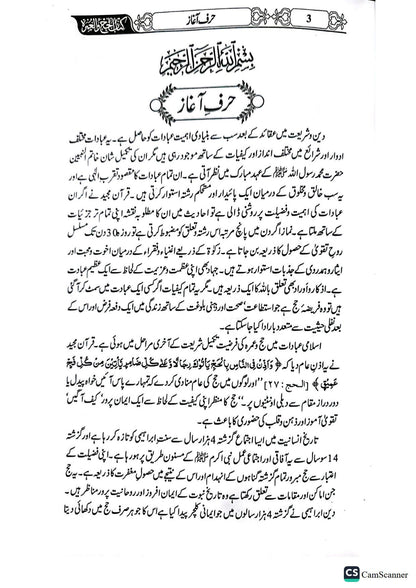 کتاب الحج والعمرہ
حرف آغاز
3
بسم الله الرحمن الرحيم
حرفِ آغاز
دین و شریعت میں عقائد کے بعد سب سے بنیادی اہمیت عبادات کو حاصل ہے۔ یہ عبادات مختلف
ادوار اور شرائع میں مختلف انداز اور کیفیات کے ساتھ موجود رہی ہیں مگر ان کی تکمیلی شان خاتم النبیین
حضرت محمد رسول اللہ ﷺ کے عہد مبارک میں نظر آتی ہے۔ ان تمام عبادات کا مقصود تقرب الٰہی ہے اور
یہ سب خالق و مخلوق کے درمیان ایک پائیدار اور مستحکم رشتہ استوار کرتی ہیں۔ قرآن مجید نے اگر ان
عبادات کی اہمیت و فضیلت پر روشنی ڈالی ہے تو احادیث میں ان کا مطلوبہ نقشہ اپنی تمام تر جزئیات
کے ساتھ ملتا ہے۔ نماز اگر دن میں پانچ مرتبہ اس رشتۂ تعلق کو مضبوط کرتی ہے تو روزہ 30 دن تک مسلسل
روحِ تقویٰ کے حصول کا ذریعہ بن جاتا ہے۔ زکوٰۃ کے ذریعے اغنیاء و فقراء کے درمیان اخوت و محبت اور
ایثار و ہمدردی کے جذبات استوار ہوتے ہیں۔ جہاد بھی اپنی عظمت و عزیمت کے لحاظ سے ایک عظیم عبادت
ہے۔ اذکار و اوراد بھی تعلق باللہ کا ایک ذریعہ ہیں۔ مگر یہ تمام کیفیات اگر کسی ایک عبادت میں سمٹ کر آ گئی
ہیں تو وہ فریضۂ حج ہے جو استطاعت، صحت اور ذہنی بلوغت کے ساتھ زندگی میں ایک دفعہ فرض اور اس کے
بعد نفلی حیثیت سے متعدد بار ادا کیا جا سکتا ہے۔
اسلامی عبادات میں حج و عمرہ کی فرضیت تکمیل شریعت کے آخری مراحل میں ہوئی ہے۔ قرآن مجید
نے یہ اذنِ عام دیا کہ ﴿وَأَذِّنْ فِي النَّاسِ بِالْحَجِّ يَأْتُوْكَ رِجَالًا وَّعَلٰى كُلِّ ضَامِرٍ يَّأْتِيْنَ مِنْ كُلِّ فَجٍّ
عَمِيْقٍ﴾ [الحج: ۲۷] ”اور لوگوں میں حج کی عام منادی کر دے کہ تمہارے پاس آئیں خواہ پیدل یا
دور دراز مقام سے دبلی اونٹنیوں پر۔“ حج کا منظر اپنی کیفیت کے لحاظ سے ایک ایمان پرور، کیف آگیں،
تقویٰ آموز اور ذہن و قلب کی حضوری کا باعث ہے۔
تاریخ انسانیت میں ایسا اجتماع گزشتہ 4 ہزار سال سے سنت ابراہیمی کو تازہ کر رہا ہے اور گزشتہ
14 سو سال سے یہ آفاقی اور اجتماعی عمل نبی اکرم ﷺ کے مسنون طریق پر ہو رہا ہے۔ اپنی فضیلت کے
اعتبار سے حج مبرور تمام گزشتہ گناہوں کے انہدام اور اس کے نتیجے میں حصول مغفرت کا ذریعہ ہے۔ یہ حج
جن اماکن اور مقامات سے تعلق رکھتا ہے وہ تاریخ نبوت کے ایمان افروز اور روحانیت پرور مناظر ہیں۔
دین ابراہیمی نے گزشتہ 4 ہزار سالوں میں جو ایمانی کلچر پیدا کیا ہے اس کا جوہر صرف حج میں دکھائی دیتا
CS CamScanner